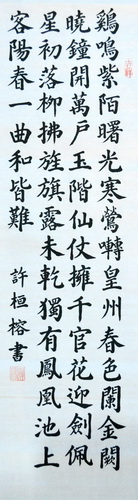 鷄鳴紫陌曙光寒鶯囀皇州春色闌金闕
曉鐘開萬戶玉階仙仗擁千官花迎劍佩
星初落柳拂旌旗露未乾獨有鳳凰池上
客陽春一曲和皆難
許桓榕書